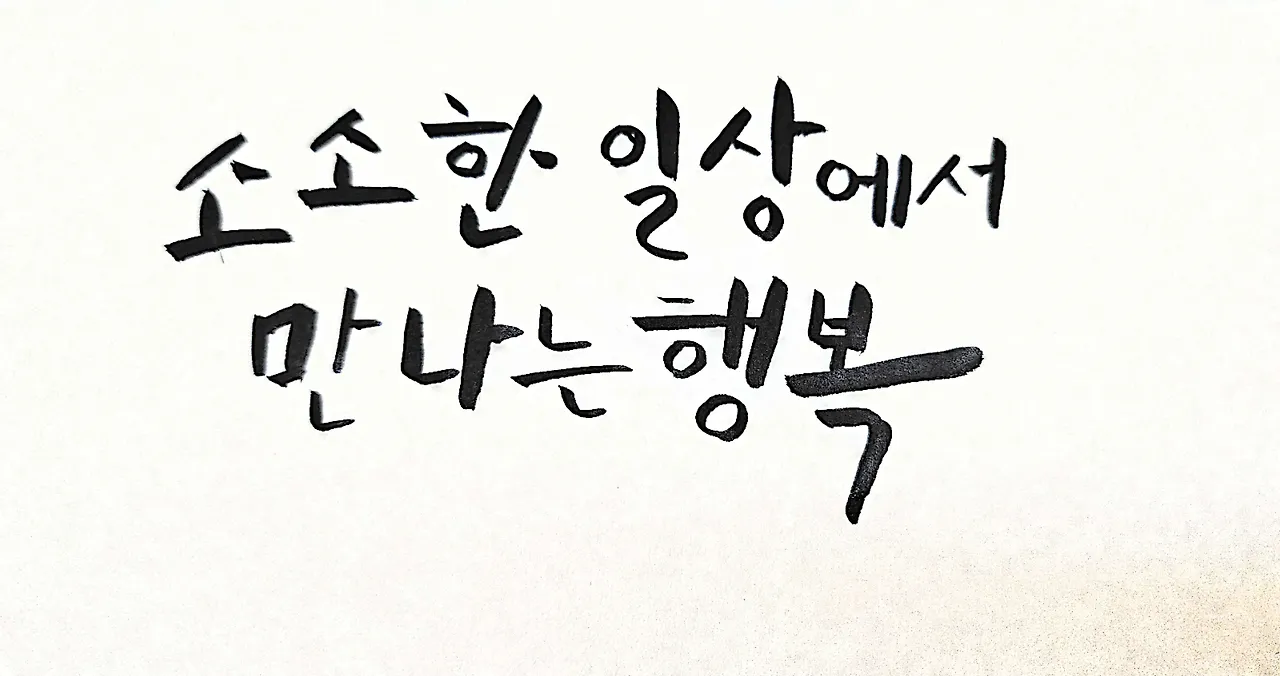 소소한 일상에서
만나는 행복